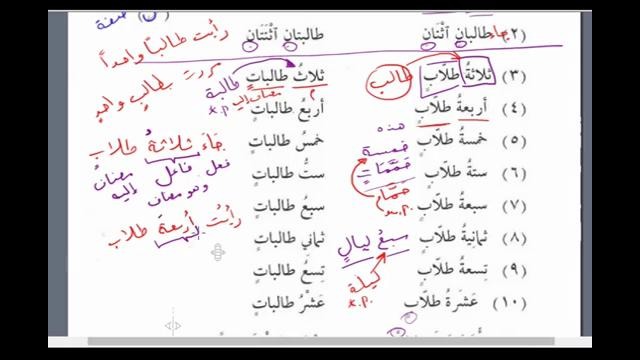 (٢) جاء طالبانِ اثْنَانِ طالبتانِ اثْنَتَانِ
رأيت طالبًا واحدًا
(٣) ثلاثةُ طلّابٍ طالب ثلاثُ طالباتٍ
طالبة
مررت بطالبٍ واحدٍ
(٤) أربعةُ طلّابٍ أربعُ طالباتٍ
هذه
(٥) خمسةُ طلّابٍ خمسة خمسُ طالباتٍ
جاءَ ثلاثةُ طلاب
(٦) ستةُ طلّابٍ حمّامات ستُّ طالباتٍ
فعل فاعل مضافٌ إليه
وهو مضاف
حمّام
(٧) سبعةُ طلّابٍ سبعُ طالباتٍ
رأيتُ أربعةَ طلاب
(٨) ثمانيةُ طلّابٍ سبعُ ليالٍ ثماني طالباتٍ
(٩) تسعةُ طلّابٍ تسعُ طالباتٍ
ليلة
(١٠) عَشَرَةُ طلّابٍ عَشْرُ طالباتٍ